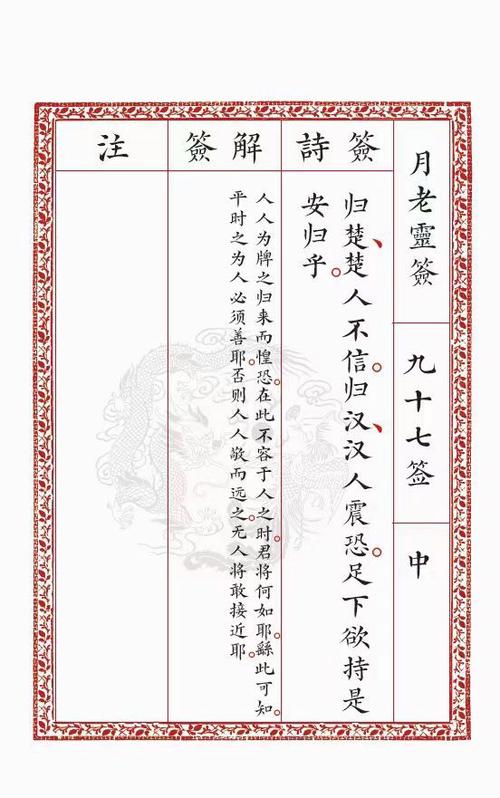 月老靈簽
九十七签
中
簽詩
归楚、楚人不信。归汉、汉人震恐。足下欲持是
安归乎。
解簽
人人为牌之归来而惶恐。在此不容于人之时。君将何如耶。繇此可知。
平时之为人必须善耶。否则人人敬而远之。无人将敢接近耶。
注